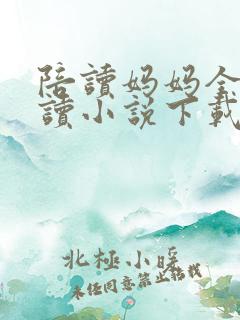 陪讀妈妈全
讀小说下載
北極小暖
未任同意禁止转载